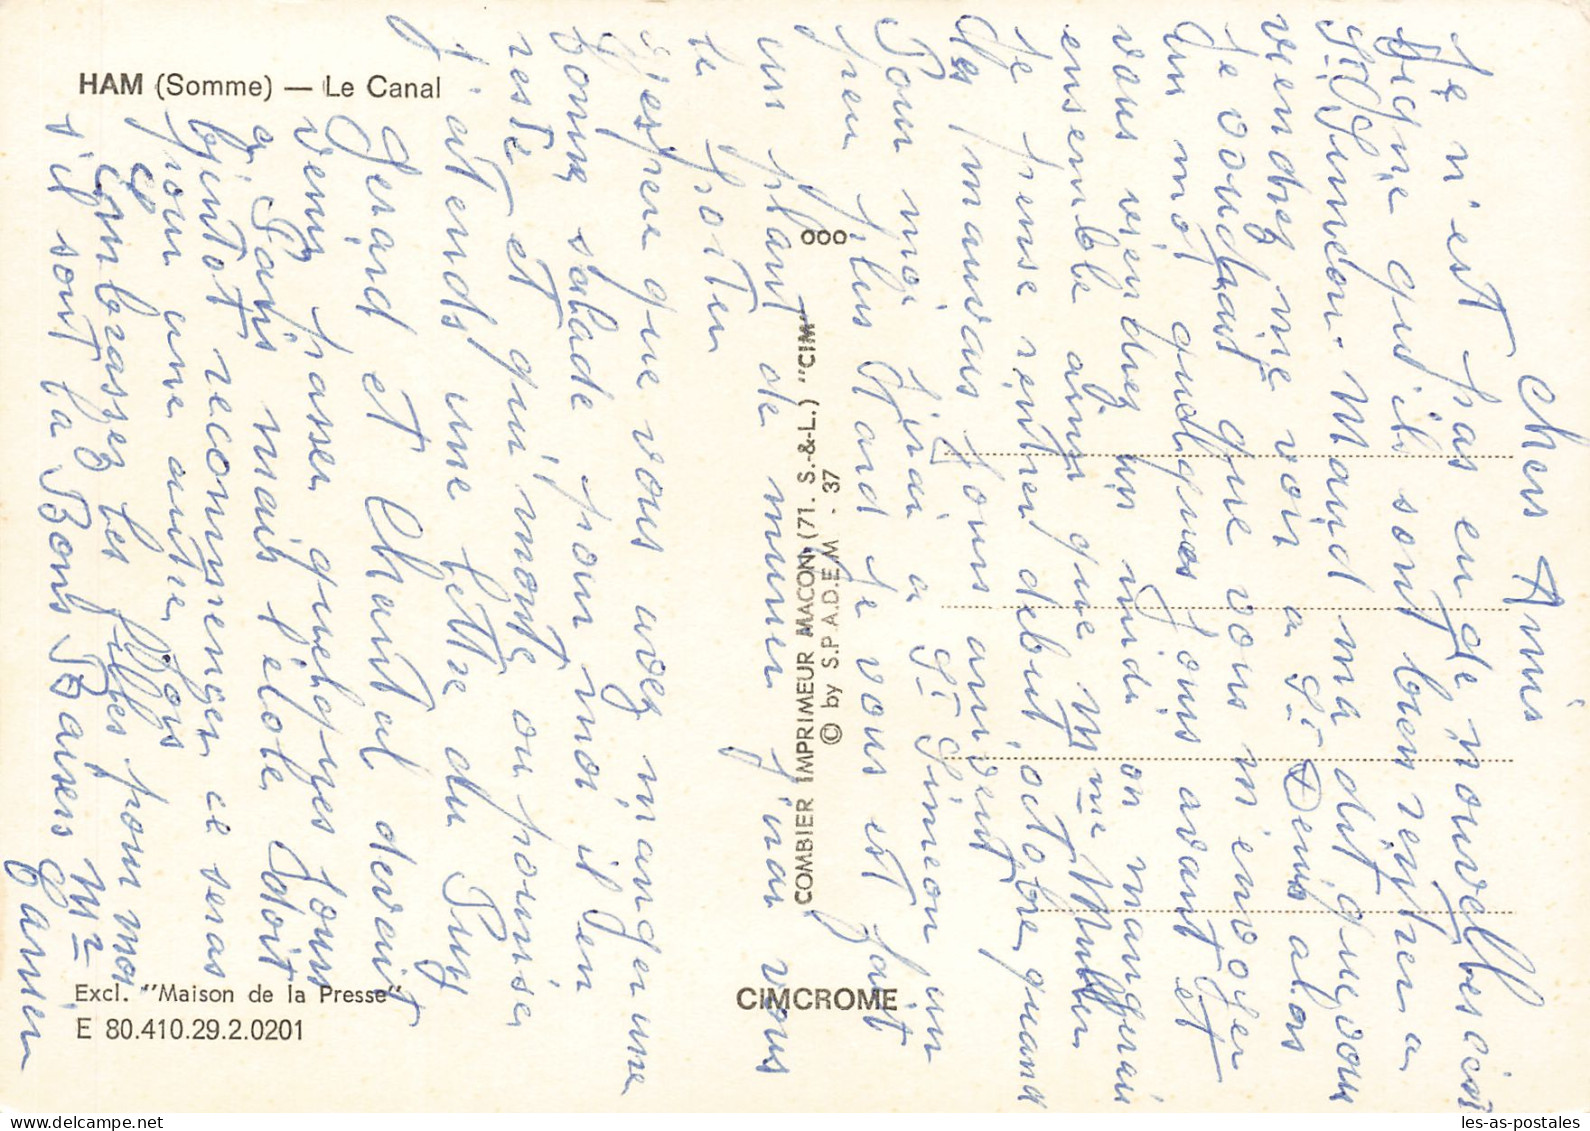 HAM (Somme) — Le Canal
Chers Amis
Je n'est pas eu de nouvelles ici
signe qu'ils sont bien rentrer a
St Simeon. Maud ma dit que vous
viendrez me voir a St Denis alors
Je voudrais que vous m'envoyer
un mot quelques jours avant et
vous viendrez un midi on mangerais
ensemble ainsi que Mme Muller
Je pense rentrer debut octobre, quand
les mauvais jours arrivent
Pour moi j'irai a St Simeon un
peu plus tard je vous est fait
un plant de murier j'irai vous
le porter
J'espere que vous avez manger une
bonne salade pour moi il en
reste et qui monte ou pommier
j'attends une lettre du Puy
Gerard et Chantal devrait
venir passer quelques jours
a Paris mais l'école doit
bjentot recommencer ce seras
pour une autre fois
Embrassez les filles pour moi
s'il sont la Bons Baisers Mr
Garnier
ooo
COMBIER IMPRIMEUR MACON (71. S.-&-L.) "CIM"
© by S.P.A.D.E.M. - 37
CIMCROME
Excl. "Maison de la Presse"
E 80.410.29.2.0201
les-as-postales.com